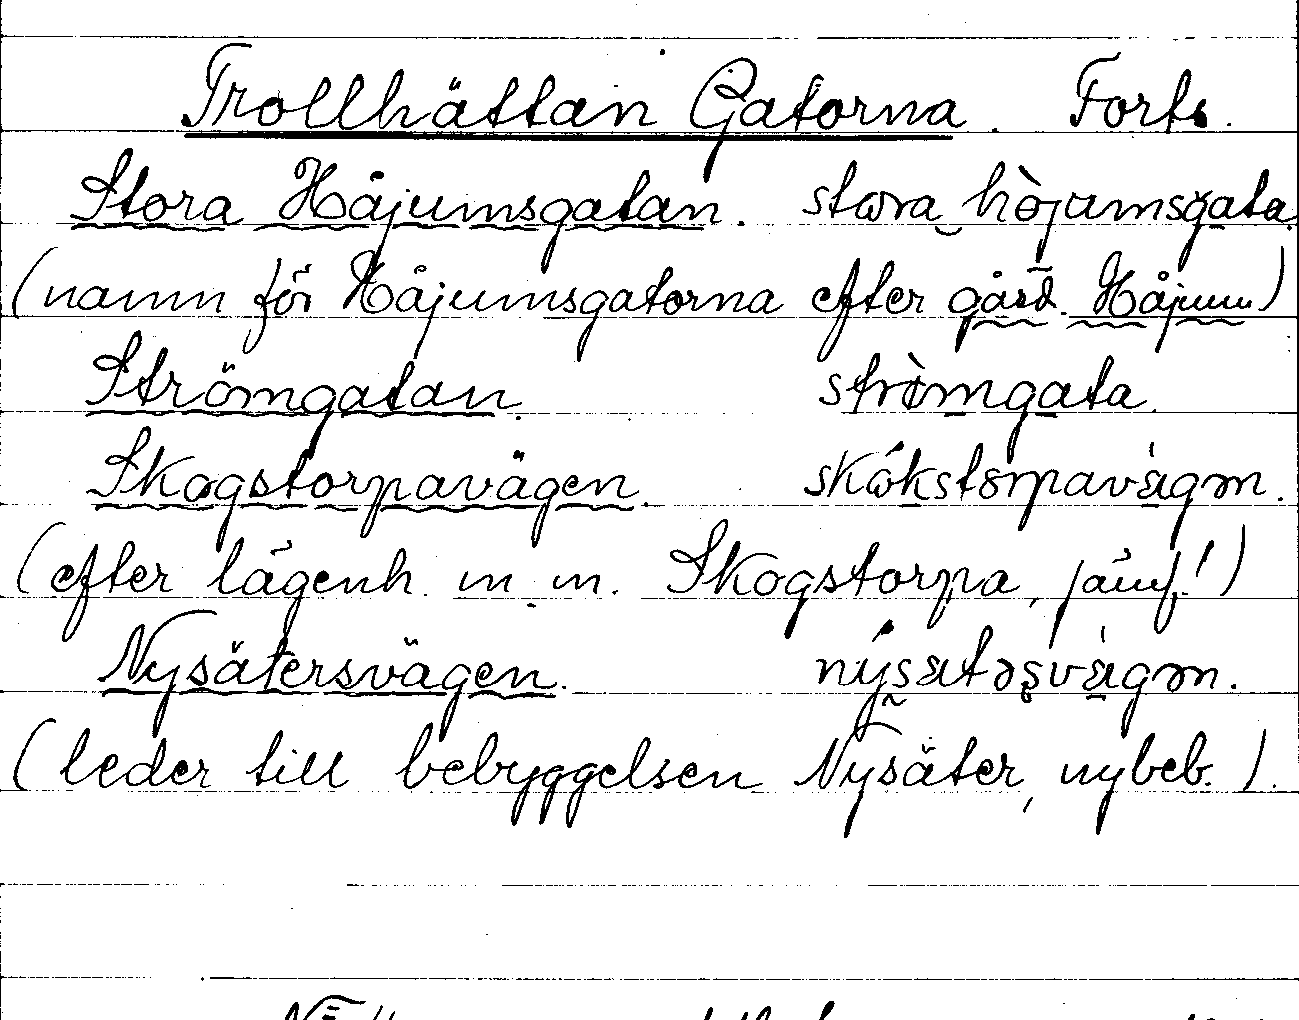 Trollhättan Gatorna. Forts.
Stora Håjumsgatan. stωra hòjumsgata.
(namn för Håjumsgatorna efter gård. Håjum)
Strömgatan. strömgata.
Skogstorpavägen. skώkstorpavägən.
(efter lägenh. m. m. Skogstorpa, jämf.!)
Nysätersvägen. nýsätəsvägən.
(leder till bebyggelsen Nysäter, nybeb.).